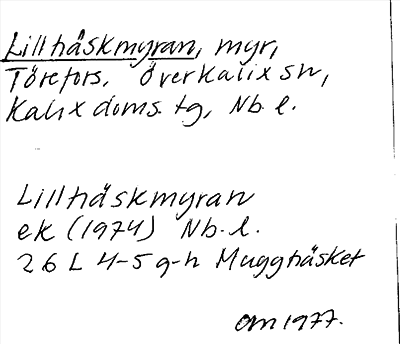 Lillhåskmyran, myr,
Törefors, Överkalix sn,
Kalix doms. tg, Nb. l.
Lillhåskmyran
ek (1974) Nb. l.
26 L 4-5 g-h Mugghåsket
OM 1977.